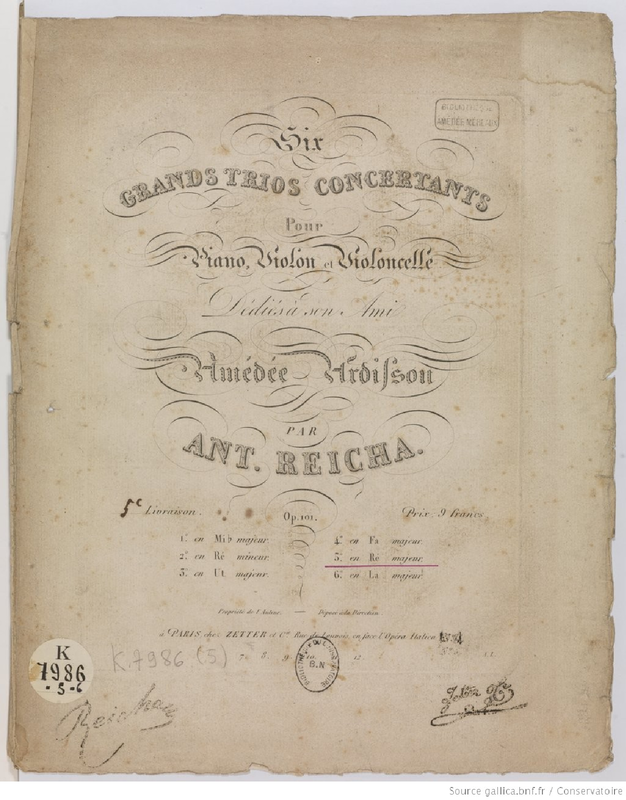 BIBLIOTHÈQUE
AMÉDÉE MÉREAUX
Six
GRANDS TRIOS CONCERTANTS
Pour
Piano, Violon et Violoncelle
Dédiés à son Ami
Amédée Ardisson
PAR
ANT. REICHA.
5e Livraison. Op. 101. Prix 9 francs
1r. en Mi b majeur.
2e. en Ré mineur.
3e. en Ut majeur.
4e. en Fa majeur.
5e. en Ré majeur.
6e. en La majeur.
Propriété de l'Auteur. Déposé à la Direction
à PARIS, chez ZETTER et Cie. Rue de en face l'Opéra Italien
K
7986
-5-6
K.7986 (5)
7. 8. 9. 12.
B.N
Reicha
Source gallica.bnf.fr / Conservatoire